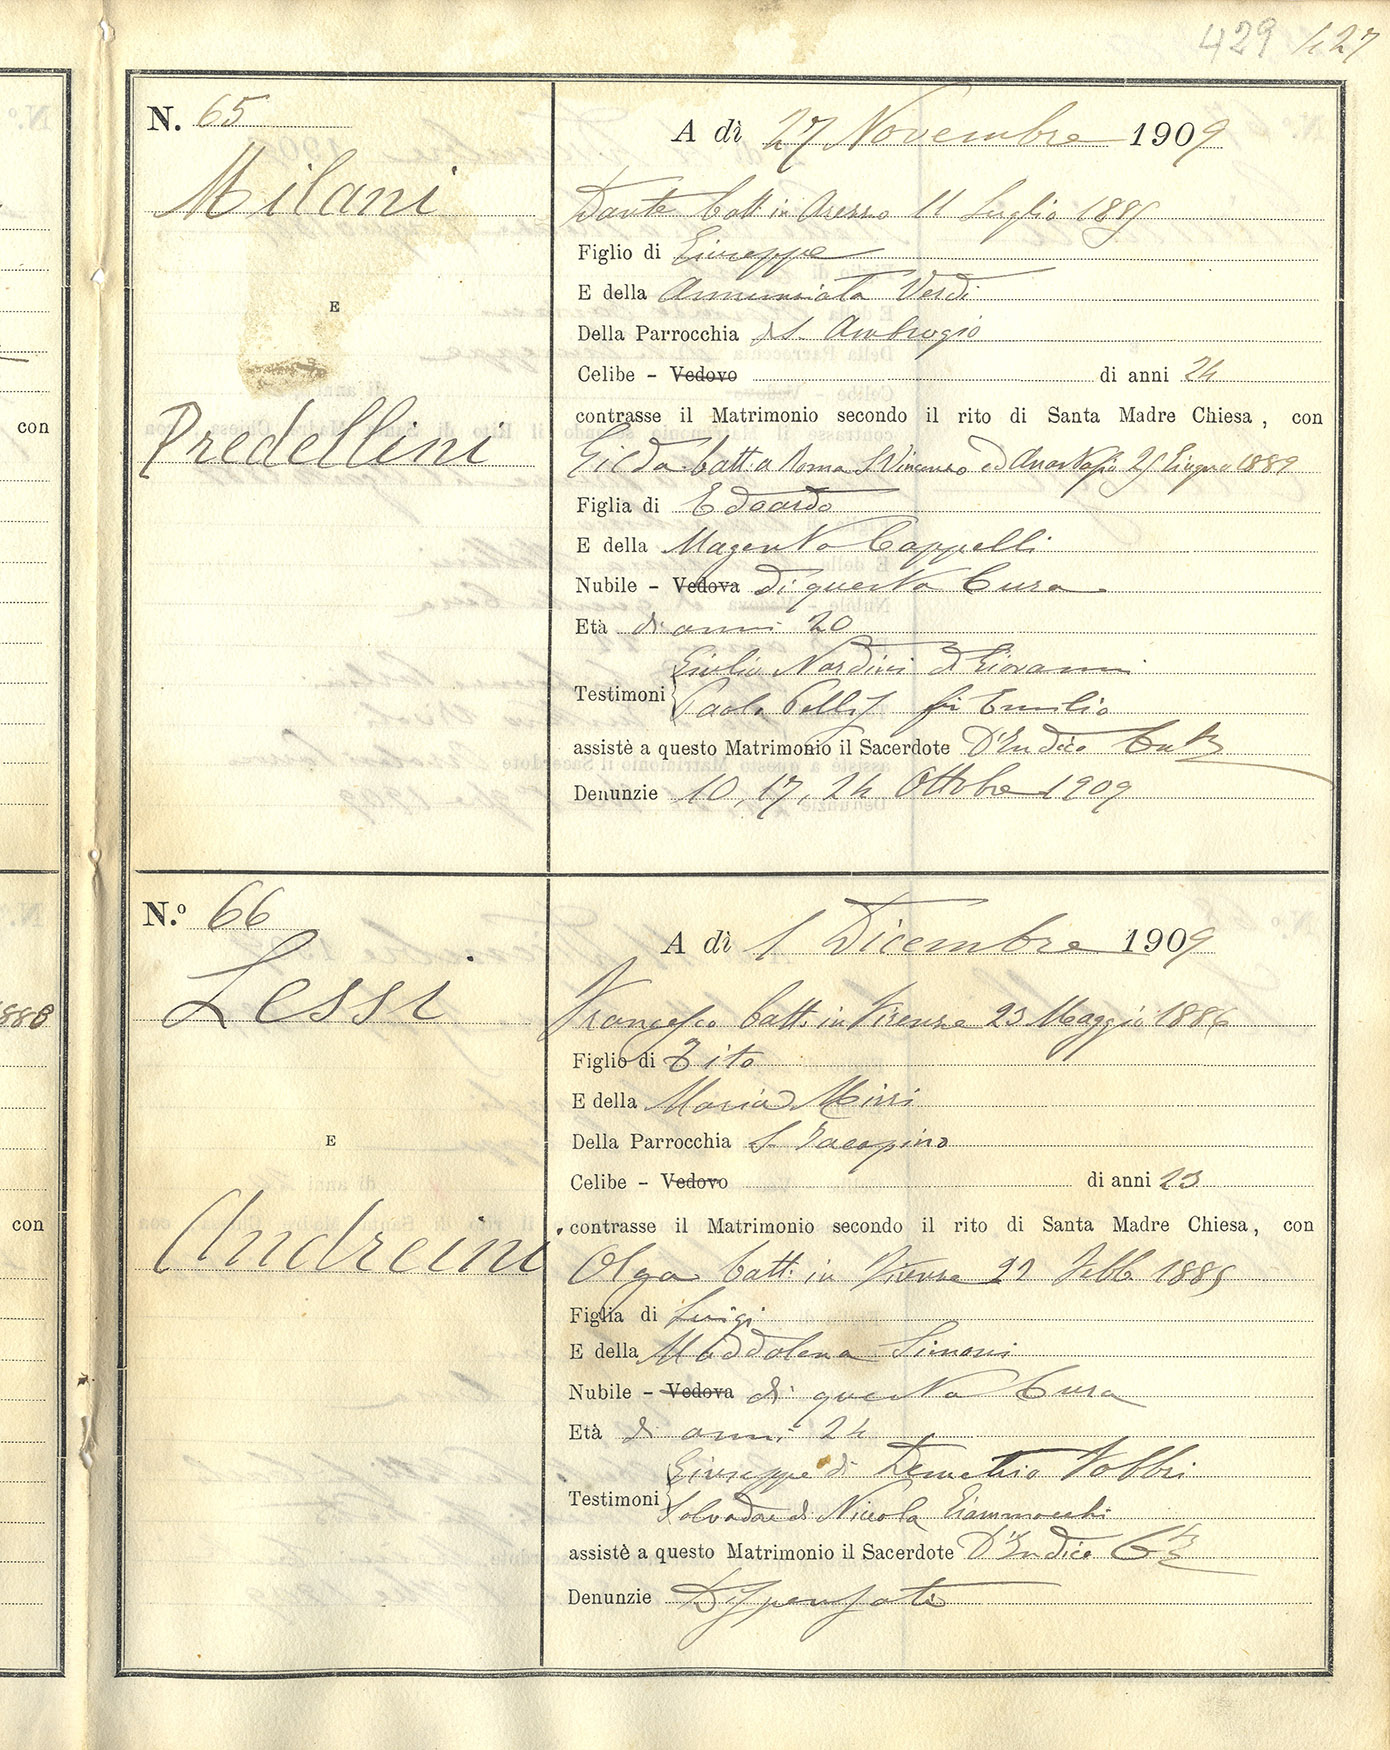 429 427
N. 65
Milani
E
Predellini
A dì 27 Novembre 1909
Dante Batt. in Arezzo 11 Luglio 1885
Figlio di Giuseppe
E della Annunziata Verdi
Della Parrocchia di S. Ambrogio
Celibe - Vedovo di anni 24
contrasse il Matrimonio secondo il rito di Santa Madre Chiesa, con
Gilda batt. a Roma S Vincenzo ed Anastasio 25 Giugno 1889
Figlia di Edoardo
E della Magenta Cappelli
Nubile - Vedova di questa Cura
Età di anni 20
Giulio Nardini di Giovanni
Testimoni
Paolo fu Emilio
assistè a questo Matrimonio il Sacerdote D'Indico
Denunzie 10, 17, 24 Ottobre 1909
N.º 66
Lessi
E
Andreini
A dì 1 Dicembre 1909
Francesco batt. in Firenze 23 Maggio 1886
Figlio di Tito
E della Maria
Della Parrocchia S Jacopino
Celibe - Vedovo di anni 23
contrasse il Matrimonio secondo il rito di Santa Madre Chiesa, con
Olga batt. in Firenze Febb 1885
Figlia di Luigi
E della Maddalena Simoni
Nubile - Vedova di questa Cura
Età di anni 24
Giuseppe di Demetrio Fabbri
Testimoni
Salvadore di Niccola
assistè a questo Matrimonio il Sacerdote D'Indico
Denunzie Dispensati
con
con